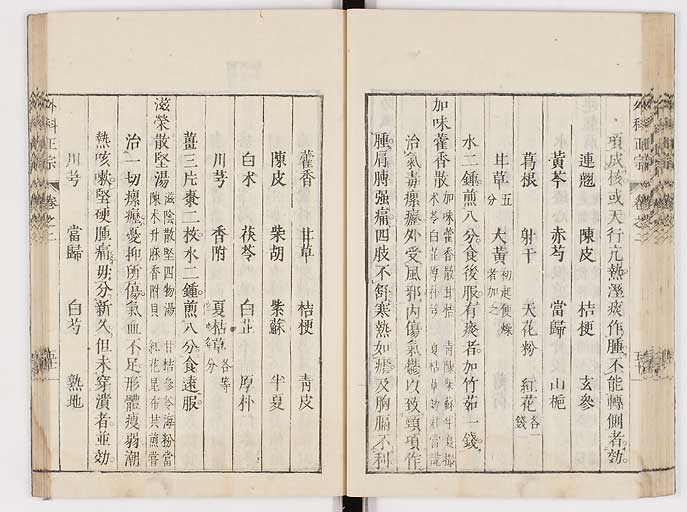 外科正宗 卷之二
項成核或天行亢熱溼痰作腫不能轉側者效
連翹 陳皮 桔梗 玄參
黃芩 赤芍 當歸 山梔
葛根 射干 天花粉 紅花各一錢
甘草五分 大黃初起便燥者加之
水二鍾煎八分食後服有痰者加竹茹一錢
加味藿香散
治氣毒瘰癧外受風邪內傷氣鬱以致頸項作
腫肩膊强痛四肢不舒寒熱如瘧及胸膈不利
藿香 甘草 桔梗 青皮
陳皮 柴胡 紫蘇 半夏
白朮 茯苓 白芷 厚朴
川芎 香附 夏枯草各等分
薑三片棗二枚水二鍾煎八分食遠服
滋榮散堅湯
治一切瘰癧憂抑所傷氣血不足形體瘦弱潮
熱咳嗽堅硬腫痛毋分新久但未穿潰者並效
川芎 當歸 白芍 熟地
外科正宗 卷之二